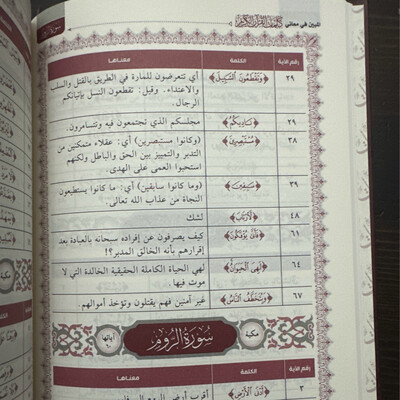 المبين في معاني كلمات القرآن الكريم
رقم الآية الكلمة معناها
٢٩ ﴿وَتَقْطَعُونَ السَّبِيلَ﴾ أي تتعرضون للمارة في الطريق بالقتل والسلب
والاعتداء. وقيل: تقطعون النسل بإتيانكم
الرجال.
٢٩ ﴿نَادِيكُمُ﴾ مجلسكم الذي تجتمعون فيه وتتسامرون.
٣٨ ﴿مُسْتَبْصِرِينَ﴾ (وكانوا مستبصرين) أي: عقلاء متمكنين من
التدبر والتمييز بين الحق والباطل ولكنهم
استحبوا العمى على الهدى.
٣٩ ﴿سَابِقِينَ﴾ (وما كانوا سابقين) أي: ما كانوا يستطيعون
النجاة من عذاب الله تعالى.
٤٨ ﴿لَّارْتَابَ﴾ لشك
٦١ ﴿فَأَنَّى يُؤْفَكُونَ﴾ كيف يصرفون عن إفراده سبحانه بالعبادة بعد
إقرارهم بأنه الخالق المدبر؟
٦٤ ﴿لَهِيَ الْحَيَوَانُ﴾ لهي الحياة الكاملة الحقيقية الخالدة التي لا
موت فيها.
٦٧ ﴿وَيُتَخَطَّفُ النَّاسُ﴾ غير آمنين فهم يقتلون وتؤخذ أموالهم.
مكية سُورَةُ الرُّومِ آياتها
رقم الآية الكلمة معناها
٣ ﴿أَدْنَى الْأَرْضِ﴾ أقرب أرض الروم إلى